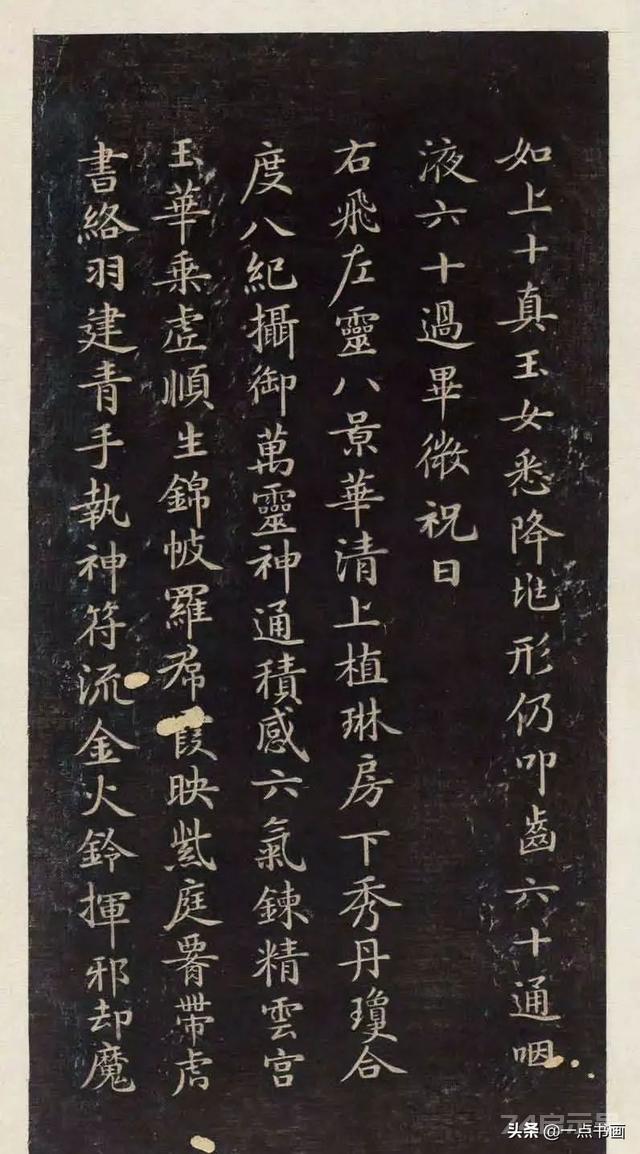 如上十真玉女悉降形仍叩齒六十通咽
液六十過畢微祝曰
右飛左靈八景華清上植琳房下秀丹瓊合
度八紀攝御萬靈神通積感六氣鍊精雲宮
玉華乘虛順生錦帔羅帬映紫庭帶虎
書絡羽建青手執神符流金火鈴揮邪却魔
头条 @一点书画